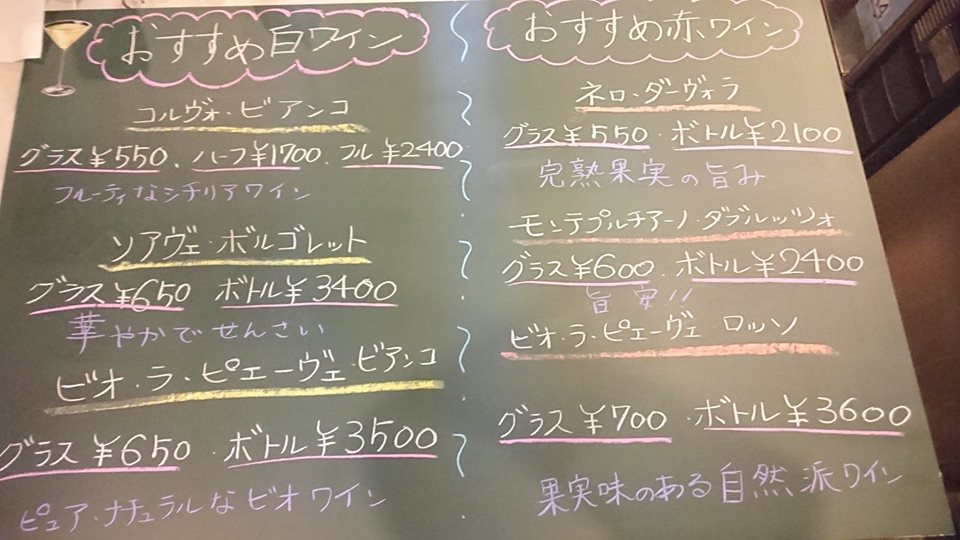 おすすめ白ワイン
コルヴォ・ビアンコ
グラス¥550、ハーフ¥1700、フル¥2400
フルーティなシチリアワイン
ソアヴェ・ボルゴレット
グラス¥650 ボトル¥3400
華やかでせんさい
ビオ・ラ・ピエーヴェ・ビアンコ
グラス¥650・ボトル¥3500
ピュア・ナチュラルなビオワイン
おすすめ赤ワイン
ネロ・ダーヴォラ
グラス¥550・ボトル¥2100
完熟果実の旨み
モンテプルチアーノ・ダブルッツォ
グラス¥600、ボトル¥2400
旨安!!
ビオ・ラ・ピエーヴェ ロッソ
グラス¥700・ボトル¥3600
果実味のある自然派ワイン